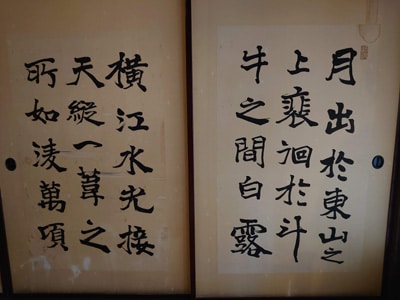 月出於東山之
上裵徊於斗
牛之間白露
橫江水光接
天縱一葦之
所如淩萬頃